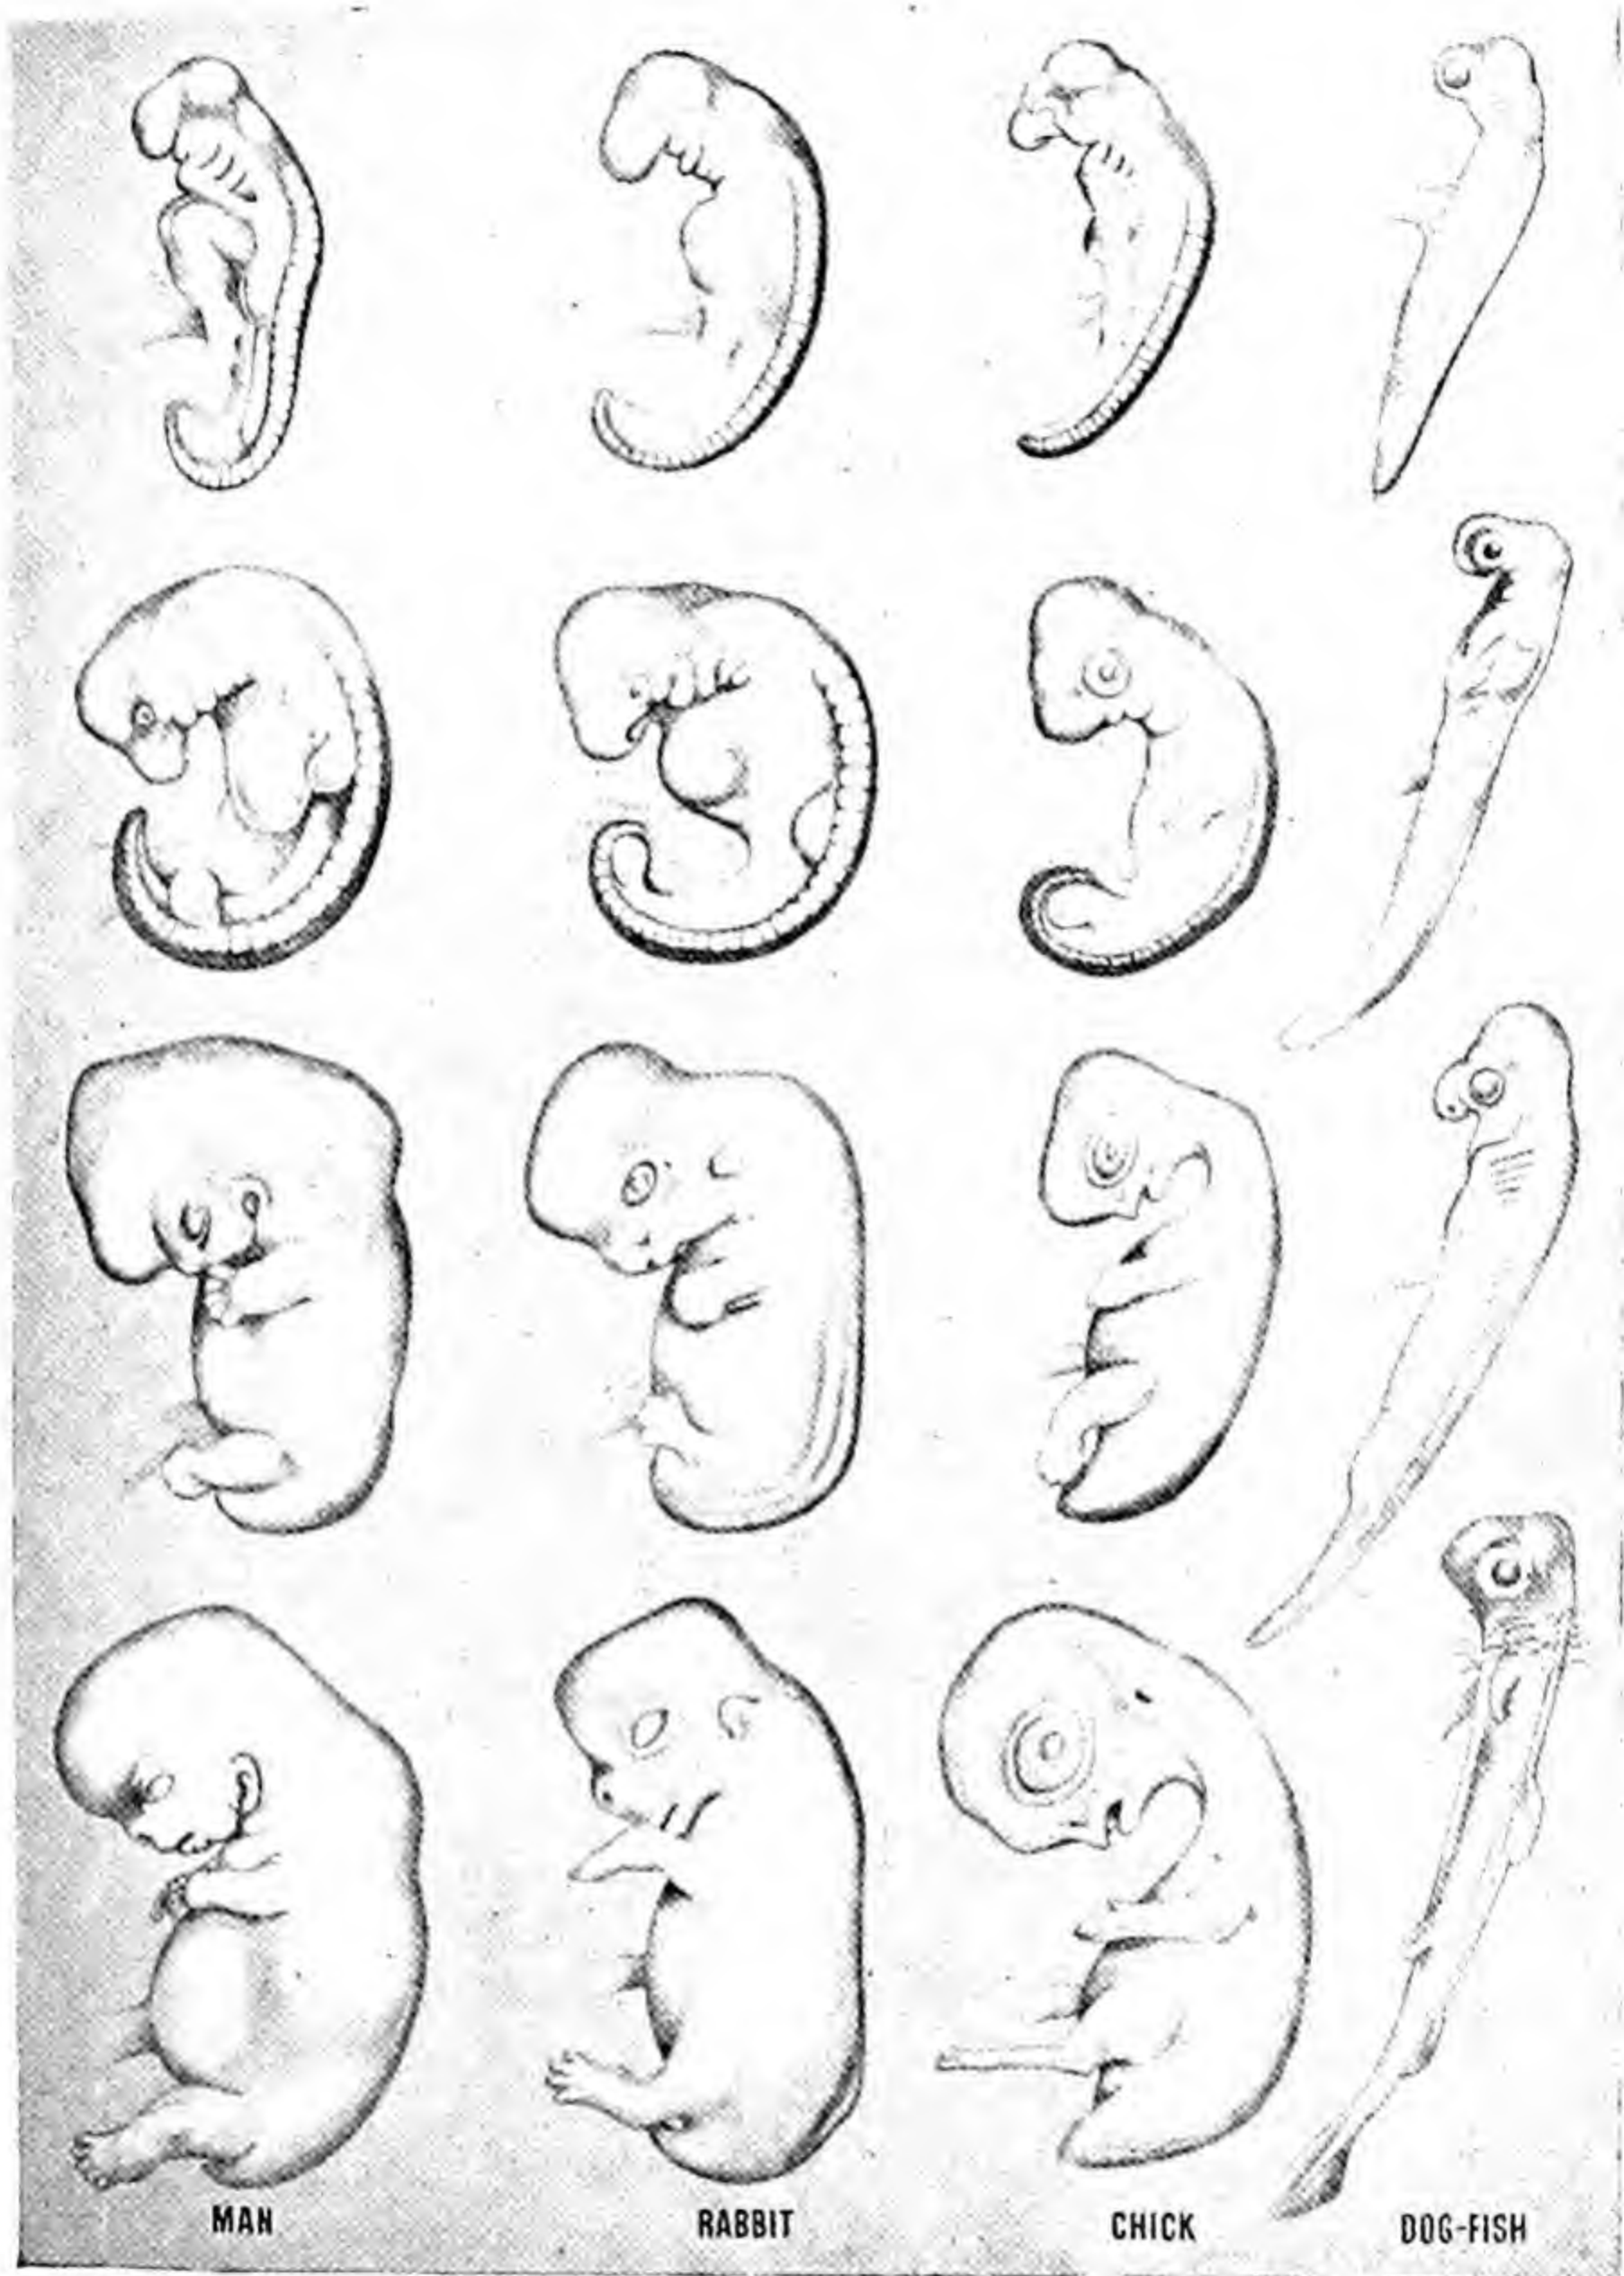 MAN RABBIT CHICK DOG-FISH